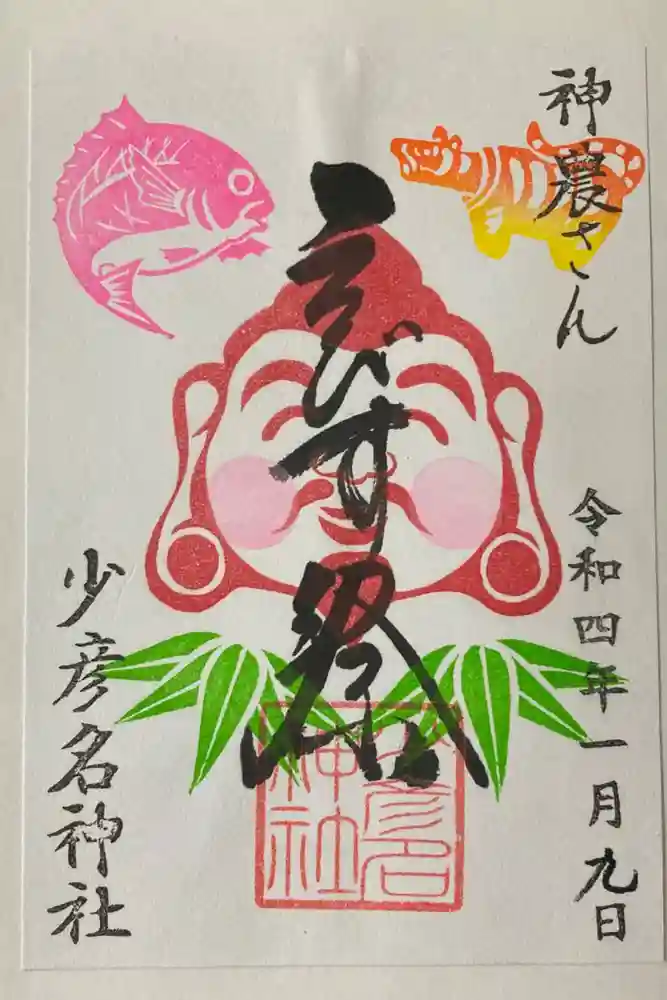 神農さん
令和四年一月九日
ゑびす祭
少彦名神社
少彦名
神社